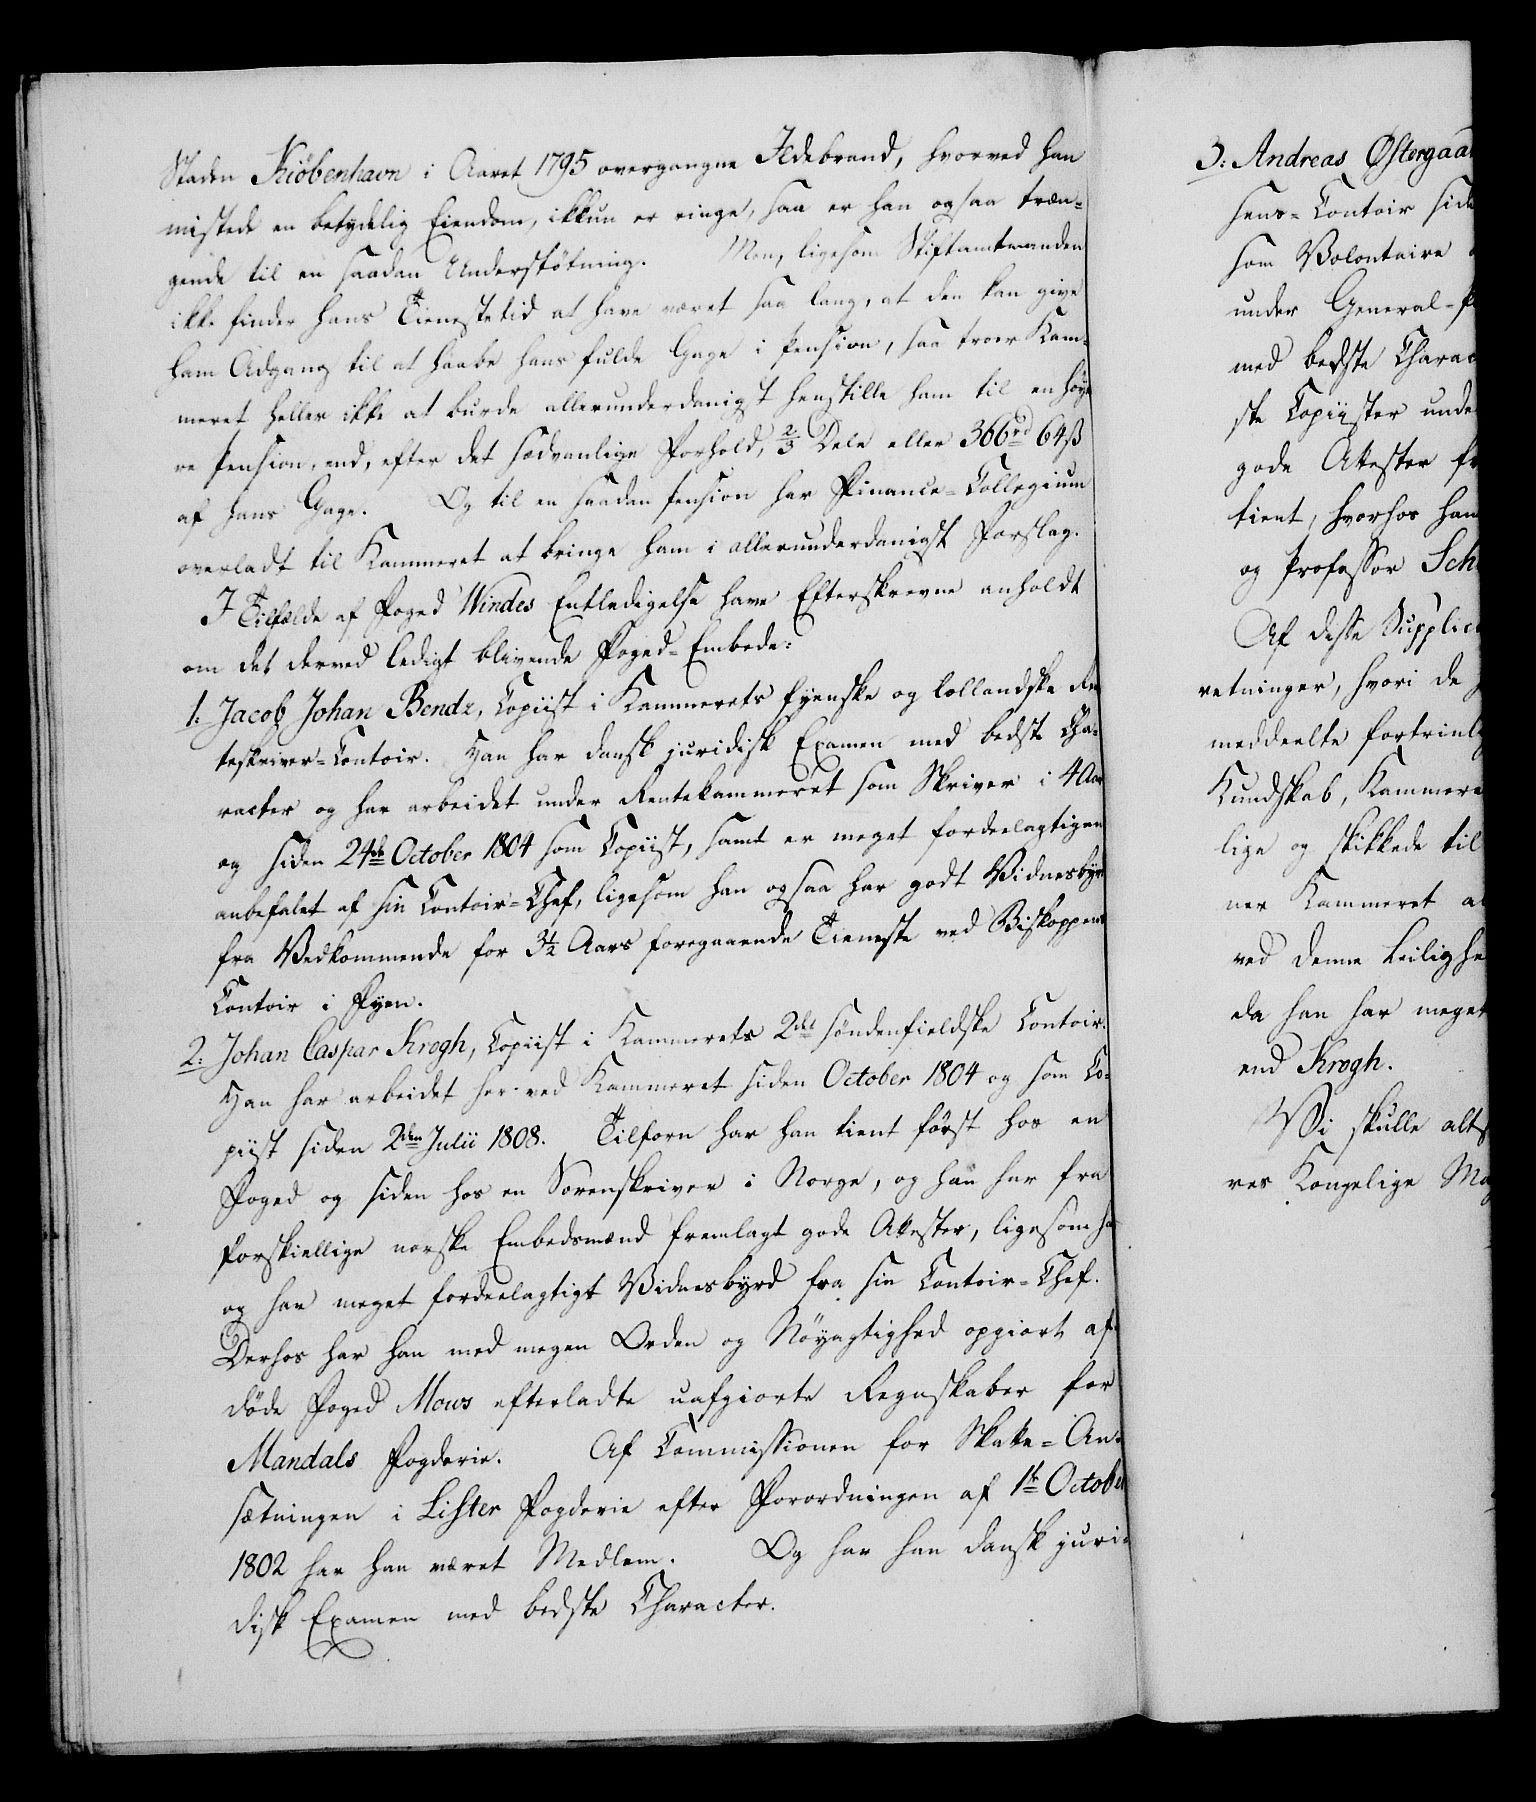 Staden Kiöbenhavn i Aaret 1795 overgangne Ildebrand, hvorved han
mistede en betydelig Eiendom, ikkun er ringe, saa er han ogsaa træn-
gende til en saadan Understøtning. Men, ligesom Stiftamtmanden
ikke finder hans Tienestetid at have været saa lang, at den kan give
ham Adgang til at haabe hans fulde Gage i Pension, saa troer Kam-
meret heller ikke at burde allerunderdanigst henstille ham til en høye
re Pension, end, efter det sædvanlige Forhold, 2/3 Dele eller 366rd 64ß
af hans Gage. Og til en saadan Pension har Finance-Collegium
overladt til Kammeret at bringe ham i allerunderdanigst Forslag.
I Tilfælde af Foged Windes Entledigelse have Efterskrevne anholdt
om det derved ledigt blivende Foged-Embede:
1. Jacob Johan Bendz, Copiist i Kammerets fyenske og lollandske Ren
teskriver-Contoir. Han har dansk juridisk Examen med bedste Cha-
racter og har arbeidet under Rentekammeret som Skriver i 4 Aar
og siden 24de October 1804 som Copiist, samt er meget fordeelagtigen
anbefalet af sin Contoir-Chef, ligesom han ogsaa har godt Vidnesbyrd
fra Vedkommende for 3½ Aars foregaaende Tieneste ved Biskoppens
Contoir i Fyen.
2. Johan Caspar Krogh, Copiist i Kammerets 2det søndenfieldske Contoir.
Han har arbeidet her ved Kammeret siden October 1804 og som Co-
piist siden 2den Julii 1808. Tilforn har han tient først hos en
Foged og siden hos en Sorenskriver i Norge, og han har fra
forskiellige norske Embedsmænd fremlagt gode Attester, ligesom ha
og har meget fordeelagtigt Vidnesbyrd fra sin Contoir-Chef.
Derhos har han med megen Orden og Nøyagtighed opgiort af-
døde Foged Mows efterladte uafgiorte Regnskaber for
Mandals Fogderie. Af Commissionen for Skatte-An-
sætningen i Lister Fogderie efter Forordningen af 1te October
1802 har han været Medlem. Og har han dansk juri-
disk Examen med bedste Character.
3: Andreas Østergaa
sens-Contoir side
som Volontaire
under General-
med bedste Charac
ske Copiister unde
gode Attester fr
tient, hvorhos han
og Professor Sch
Af disse Supplica
retninger, hvori de
meddeelte fortrinl
Kundskab, Kammere
lige og skikkede til
ner Kammeret al
ved denne Leilighe
da han har meget
end Krogh.
Vi skulle alts
res Kongelige Ma